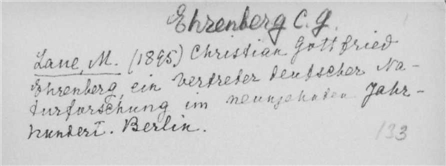 Ehrenberg C. G.
Laue, M. (1895) Christian Gottfried
Ehrenberg, ein Vertreter deutscher Na-
turforschung im neunzehnten Jahr-
hundert. Berlin.
133